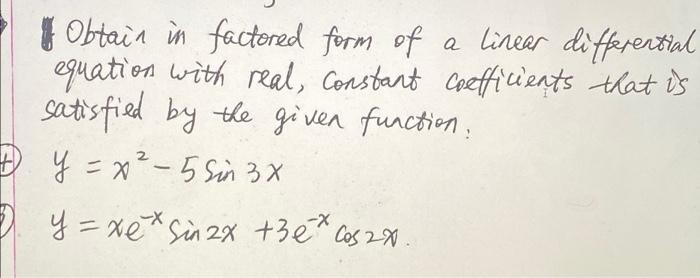 Obtain in factored form of a linear differential
equation with real, constant coefficients that is
satisfied by the given function.
y = x² - 5 Sin 3x
y = xe⁻ˣ Sin 2x + 3e⁻ˣ Cos 2x.